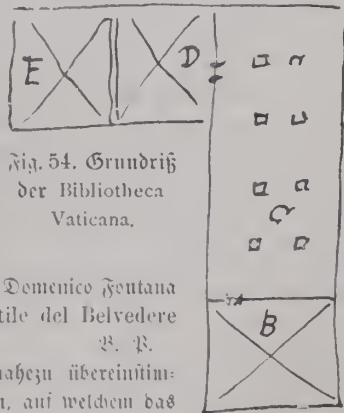 E
D
C
B
Fig. 54. Grundriß
der Bibliotheca
Vaticana.
Domenico Fontana
tile del Belvedere
B. P.
nahezu übereinstim=
n, auf welchem das